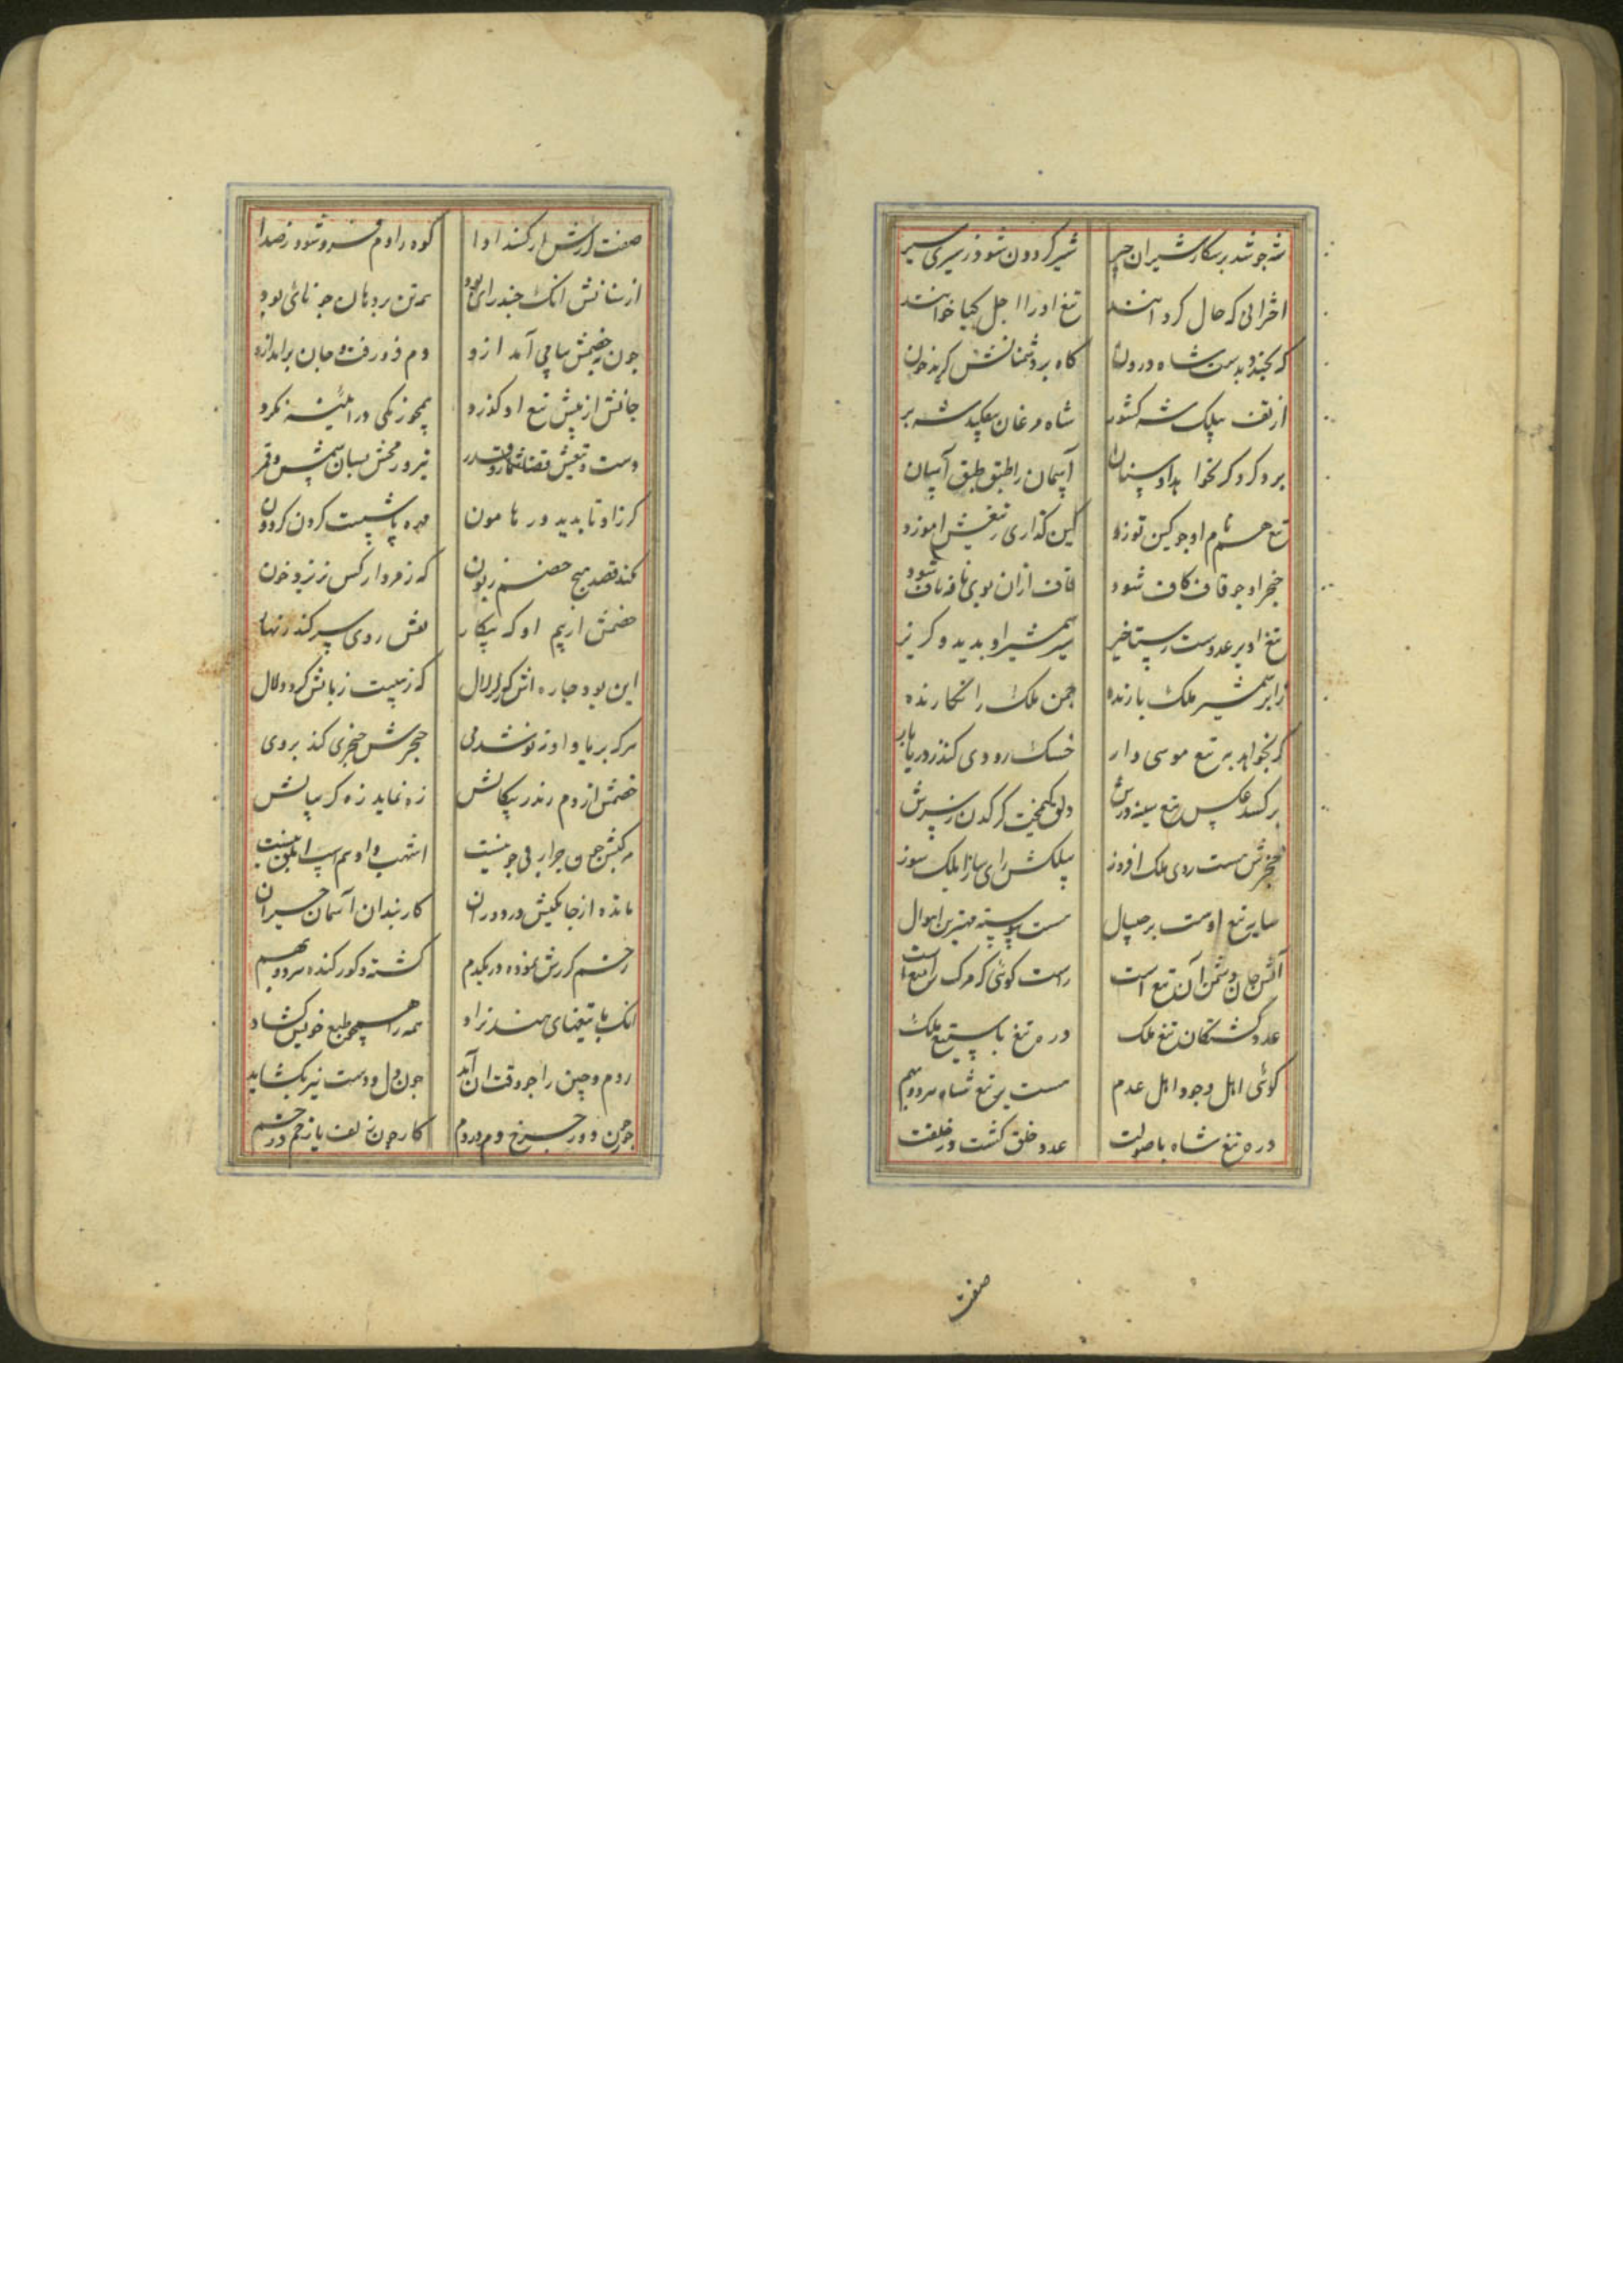 شه جو شد بر شکار شیران چیر شیر کردون شود ز سیری سیر
اخرانی که حال کرد اننـد تیغ او را اجل کیا خوانند
که بخندد بدست شاه درون کاه بر دشمنانش کرید خون
از تف بیلک شه کشور شاه مرغان بیفکند شه بر
برد کرد کر نخواهد او سنان آسمان را طبق طبق آسان
تیغ هم نام او جو کین توزد کین کذاری ز تیغش اموزد
خنجر او جو قاف کاف شود قاف ازان بوی نافه ناف شود
تیغ او بر عدوست رستاخیز سر شمشیر او بدید و کریز
زابر شمشیر ملک بازنده جمن ملک را نکارنده
کر بخواهد به تیغ موسی وار خشک رودی کند ز دریا بار
بر کشد عکس تیغ سینه درش دلق کیمخت کرکدن ز برش
خنجرش هست روی ملک افروز بیلکش رای
سایه تیغ اوست بر جیپال هست پیوسته مهترین اهوال
آتش جان دشمن آن تیغ است راست کوئی که مرک را میغ است
عدد کشتکان تیغ ملک در مه تیغ با ستیغ ملک
کوئی اهل وجود اهل عدم هست بر تیغ شاه هر دو بهم
در مه تیغ شاه با صولت عدد خلق کشت در خلقت
صفت
صفت کرزش ار کنند ادا کوه را دم فرو شود ز صدا
از سنانش انک خیدرای بود همه تن بر دهان جو نای بود
جون بخصمش پیامی آمد ازو دم فرو رفت و جان برامد ازو
جانش از پیش تیغ او کذرد همجو زنکی در اینه نکرد
دست و تیغش قضا شمار و قدر تیر و رمحش بسان شمس و قمر
کرز او تا بدید در هامون مهره پشت کردن کردون
نکند قصد هیچ خصم زبون که ز مردار کس نریزد خون
خصمش از بیم او که پیکار نقش روی سپر کند زنهار
این بود چاره اش که کر لال که ز هیبت زبانش کردد لال
هر که بر یاد او نوشد می حنجرش خنجری کند بر وی
خصمش از دم زند ز پیکانش زه نماید زه کریبانش
مرکبش جون جرا بی جو نیست اشهب و ادهم سپ ابلق نیست
مانده از جابکیش در دوران کاربندان آسمان حیران
زخم کرزش نموده در یکدم کشته و کور کنده هر دو بهم
انک با تیغهای هند نژاد همه را همچو طبع خویش کشاد
روم و چین را جو وقت ان آید جون دل و دست نیز بکشاید
جون جمن دور جرخ دم در دم کار جون زلف یار خم در خم